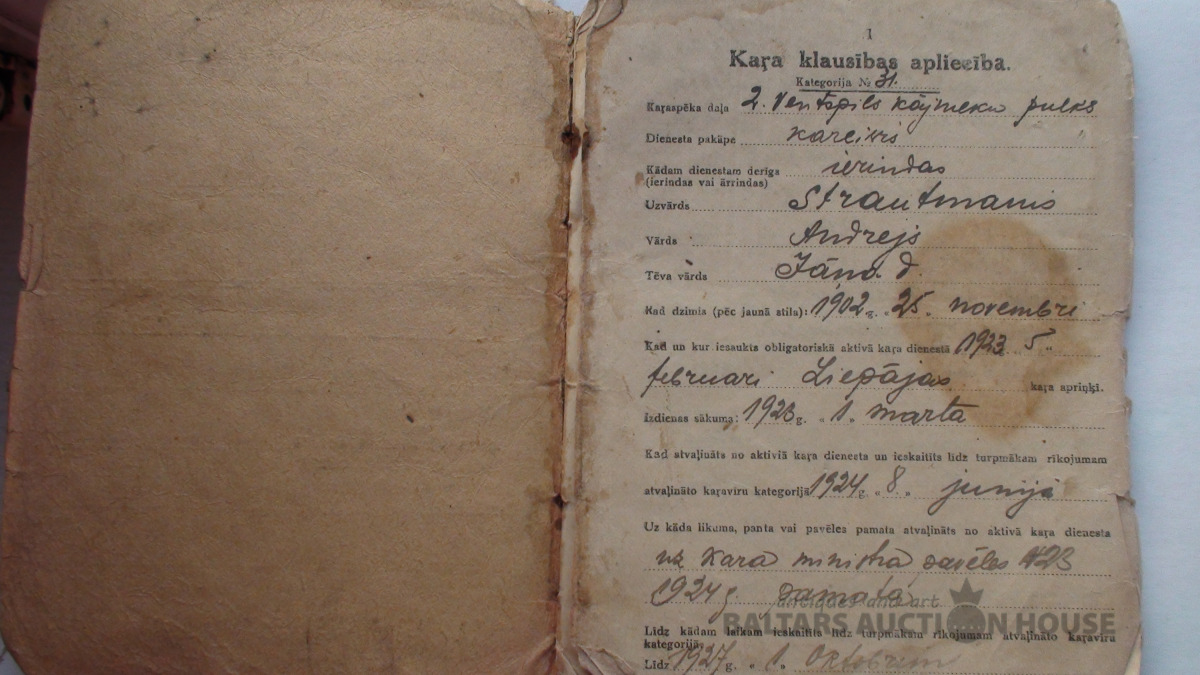 1
Kaŗa klausības apliecība.
Kategorija № 31.
Kaŗaspēka daļa 2. Ventspils kājneku pulks
Dienesta pakāpe kareivis
Kādam dienestam derīgs ierindas
(ierindas vai ārrindas)
Uzvārds Strautmanis
Vārds Andrejs
Tēva vārds Jāņa d.
Kad dzimis (pēc jaunā stila): 1902 g. „ 25 „ novembri
Kad un kur iesaukts obligatoriskā aktīvā kaŗa dienestā 1923 5 „
februari Liepājas kaŗa apriņķī.
Izdienas sākums: 1923 g. „ 1. „ marta
Kad atvaļināts no aktīvā kaŗa dienesta un ieskaitīts līdz turpmākam rīkojumam
atvaļināto kaŗavīru kategorijā 1924 g. „ 8. „ junijā
Uz kāda likuma, panta vai pavēles pamata atvaļināts no aktīvā kaŗa dienesta
uz Kara ministra pavēles №23
1924 g. pamata
antiques and art
BALTARS AUCTION HOUSE
Līdz kādam laikam ieskaitīts līdz turpmākam rīkojumam atvaļināto kaŗavīru
kategorijā:
Līdz 1927 g. „ 1 „ Oktobrim